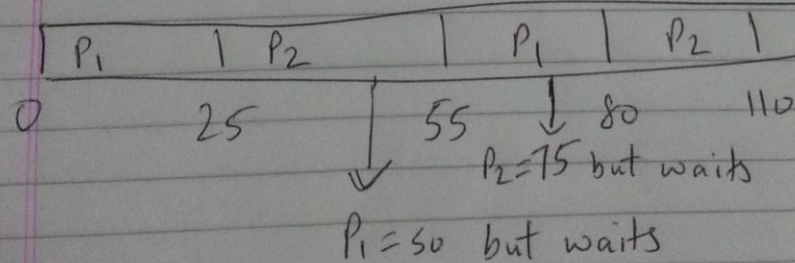 P1 P2 P1 P2
0 25 55 80 110
P2=75 but waits
P1=50 but waits